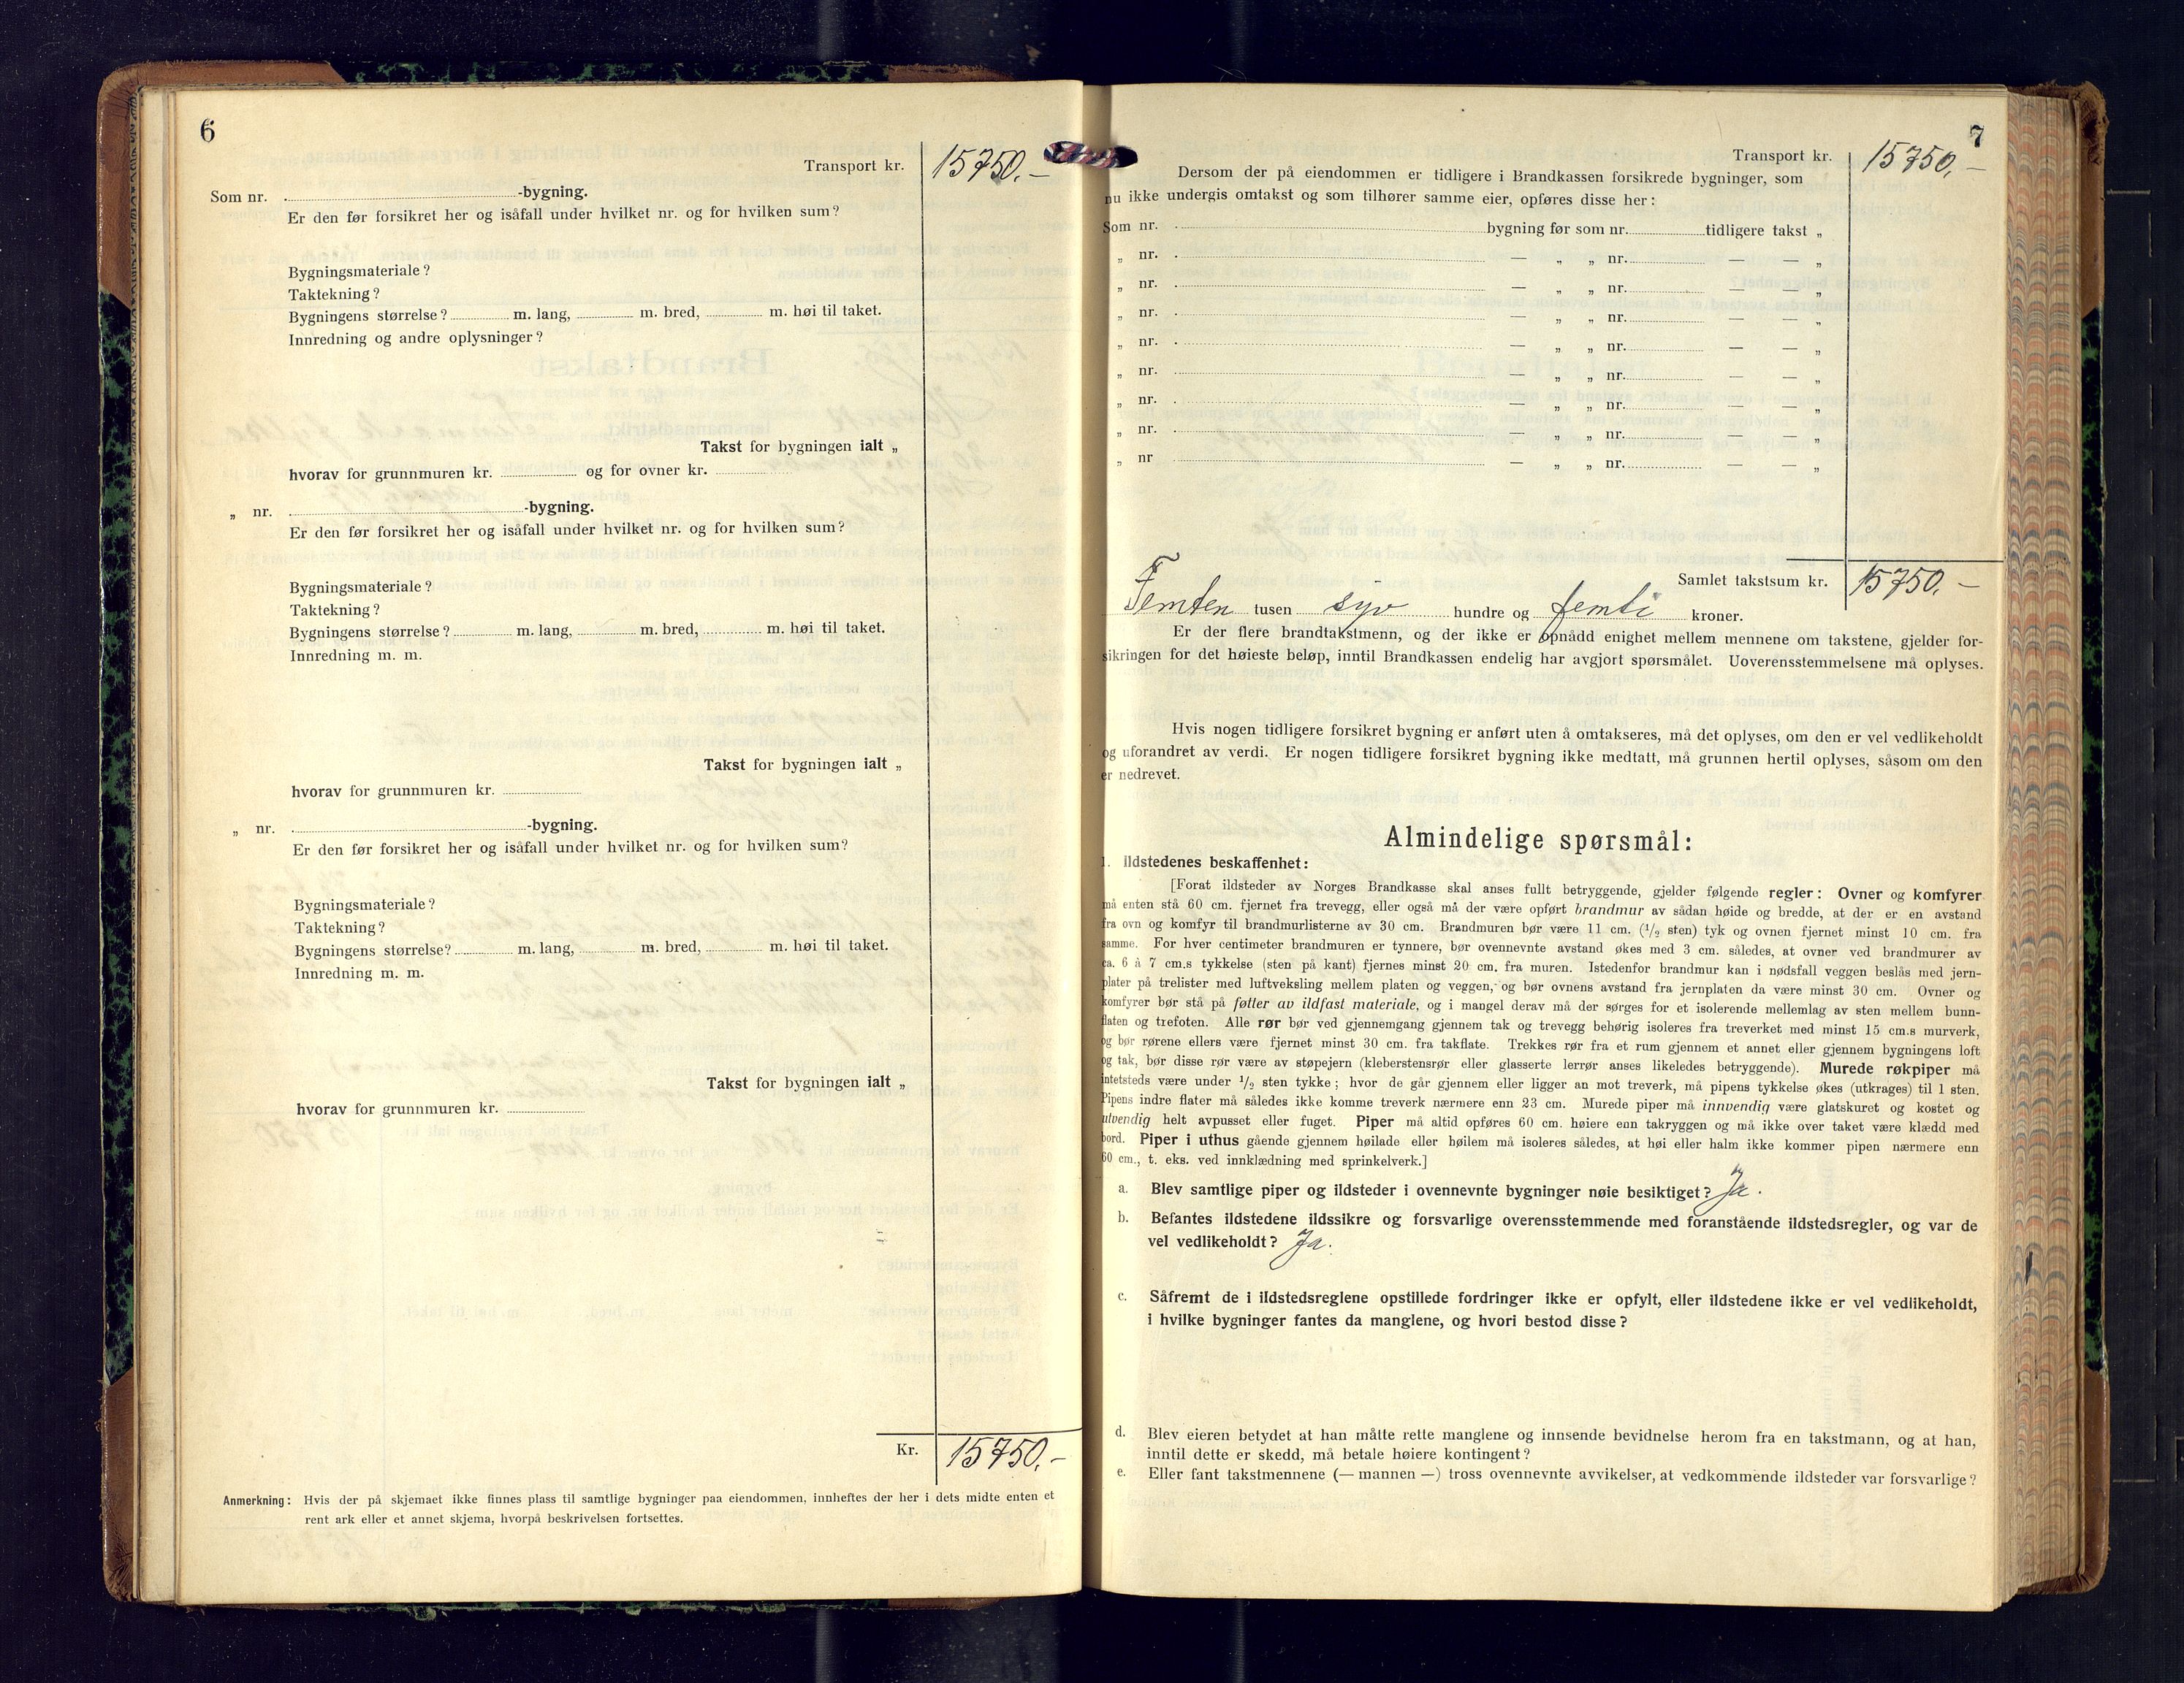 6
Transport kr. 15750.—
Som nr. -bygning.
Er den før forsikret her og isåfall under hvilket nr. og for hvilken sum?
Bygningsmateriale?
Taktekning?
Bygningens størrelse? m. lang, m. bred, m. høi til taket.
Innredning og andre oplysninger?
Takst for bygningen ialt „
hvorav for grunnmuren kr. og for ovner kr.
„ nr. -bygning.
Er den før forsikret her og isåfall under hvilket nr. og for hvilken sum?
Bygningsmateriale?
Taktekning?
Bygningens størrelse? m. lang, m. bred, m. høi til taket.
Innredning m. m.
Takst for bygningen ialt „
hvorav for grunnmuren kr.
„ nr. -bygning.
Er den før forsikret her og isåfall under hvilket nr. og for hvilken sum?
Bygningsmateriale?
Taktekning?
Bygningens størrelse? m. lang, m. bred, m. høi til taket.
Innredning m. m.
Takst for bygningen ialt „
hvorav for grunnmuren kr.
Kr. 15750.—
Anmerkning: Hvis der på skjemaet ikke finnes plass til samtlige bygninger paa eiendommen, innheftes der her i dets midte enten et
rent ark eller et annet skjema, hvorpå beskrivelsen fortsettes.
7
Transport kr. 15750.—
Dersom der på eiendommen er tidligere i Brandkassen forsikrede bygninger, som
nu ikke undergis omtakst og som tilhører samme eier, opføres disse her:
Som nr. bygning før som nr. tidligere takst „
„ nr. — „ „ nr. — — „
„ nr. — „ „ nr. — — „
„ nr. — „ „ nr. — — „
„ nr. — „ „ nr. — — „
„ nr. — „ „ nr. — — „
„ nr. — „ „ nr. — — „
„ nr. — „ „ nr. — — „
„ nr — „ „ nr. — — „
Samlet takstsum kr. 15750.—
Femten tusen syv hundre og femti kroner.
Er der flere brandtakstmenn, og der ikke er opnådd enighet mellem mennene om takstene, gjelder for-
sikringen for det høieste beløp, inntil Brandkassen endelig har avgjort spørsmålet. Uoverensstemmelsene må oplyses.
Hvis nogen tidligere forsikret bygning er anført uten å omtakseres, må det oplyses, om den er vel vedlikeholdt
og uforandret av verdi. Er nogen tidligere forsikret bygning ikke medtatt, må grunnen hertil oplyses, såsom om den
er nedrevet.
Almindelige spørsmål:
1. Ildstedenes beskaffenhet:
[Forat ildsteder av Norges Brandkasse skal anses fullt betryggende, gjelder følgende regler: Ovner og komfyrer
må enten stå 60 cm. fjernet fra trevegg, eller også må der være opført brandmur av sådan høide og bredde, at der er en avstand
fra ovn og komfyr til brandmurlisterne av 30 cm. Brandmuren bør være 11 cm. (1/2 sten) tyk og ovnen fjernet minst 10 cm. fra
samme. For hver centimeter brandmuren er tynnere, bør ovennevnte avstand økes med 3 cm. således, at ovner ved brandmurer av
ca. 6 à 7 cm.s tykkelse (sten på kant) fjernes minst 20 cm. fra muren. Istedenfor brandmur kan i nødsfall veggen beslås med jern-
plater på trelister med luftveksling mellem platen og veggen, og bør ovnens avstand fra jernplaten da være minst 30 cm. Ovner og
komfyrer bør stå på føtter av ildfast materiale, og i mangel derav må der sørges for et isolerende mellemlag av sten mellem bunn-
flaten og trefoten. Alle rør bør ved gjennemgang gjennem tak og trevegg behørig isoleres fra treverket med minst 15 cm.s murverk,
og bør rørene ellers være fjernet minst 30 cm. fra takflate. Trekkes rør fra et rum gjennem et annet eller gjennem bygningens loft
og tak, bør disse rør være av støpejern (kleberstensrør eller glasserte lerrør anses likeledes betryggende). Murede røkpiper må
intetsteds være under 1/2 sten tykke; hvor de går gjennem eller ligger an mot treverk, må pipens tykkelse økes (utkrages) til 1 sten.
Pipens indre flater må således ikke komme treverk nærmere enn 23 cm. Murede piper må innvendig være glatskuret og kostet og
utvendig helt avpusset eller fuget. Piper må altid opføres 60 cm. høiere enn takryggen og må ikke over taket være klædd med
bord. Piper i uthus gående gjennem høilade eller høilem må isoleres således, at høi eller halm ikke kommer pipen nærmere enn
60 cm., t. eks. ved innklædning med sprinkelverk.]
a. Blev samtlige piper og ildsteder i ovennevnte bygninger nøie besiktiget? Ja.
b. Befantes ildstedene ildssikre og forsvarlige overensstemmende med foranstående ildstedsregler, og var de
vel vedlikeholdt? Ja.
c. Såfremt de i ildstedsreglene opstillede fordringer ikke er opfylt, eller ildstedene ikke er vel vedlikeholdt,
i hvilke bygninger fantes da manglene, og hvori bestod disse?
d. Blev eieren betydet at han måtte rette manglene og innsende bevidnelse herom fra en takstmann, og at han,
inntil dette er skedd, må betale høiere kontingent?
e. Eller fant takstmennene (— mannen —) tross ovennevnte avvikelser, at vedkommende ildsteder var forsvarlige?